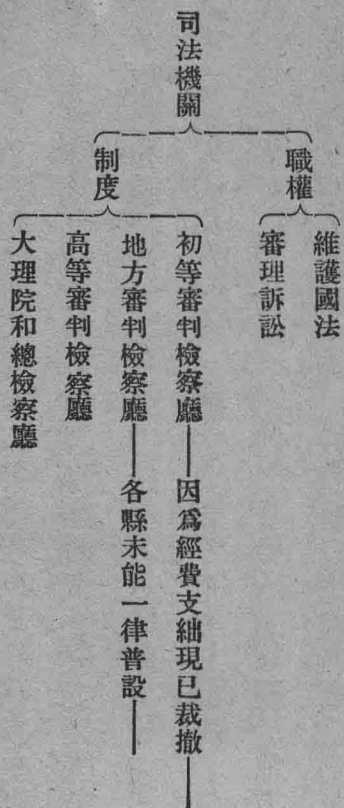 司法機關
職權
維護國法
審理訴訟
制度
初等審判檢察廳——因爲經費支絀現已裁撤——
地方審判檢察廳——各縣未能一律普設——
高等審判檢察廳
大理院和總檢察廳